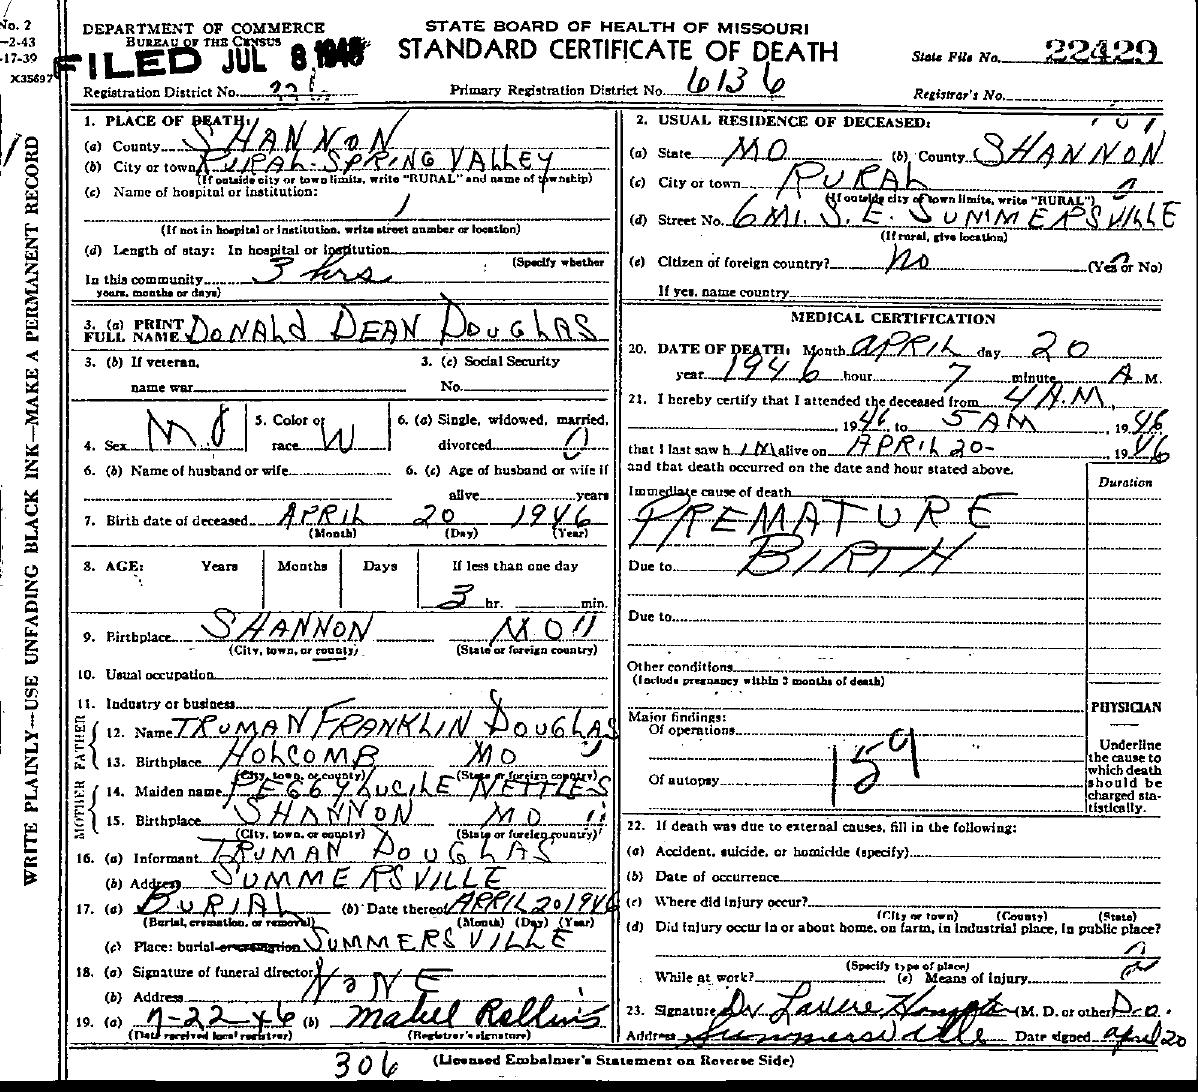 No. 2
-2-43
-17-39
X35697
WRITE PLAINLY—USE UNFADING BLACK INK—MAKE A PERMANENT RECORD
DEPARTMENT OF COMMERCE
BUREAU OF THE CENSUS
FILED JUL 8 1946
STATE BOARD OF HEALTH OF MISSOURI
STANDARD CERTIFICATE OF DEATH
State File No. 22429
Registration District No.
Primary Registration District No. 6136
Registrar's No.
1. PLACE OF DEATH:
(a) County SHANNON
(b) City or town RURAL-SPRING VALLEY
(If outside city or town limits, write "RURAL" and name of township)
(c) Name of hospital or institution:
(If not in hospital or institution, write street number or location)
(d) Length of stay: In hospital or institution
(Specify whether
In this community 3 hrs
years, months or days)
3. (a) PRINT
FULL NAME DONALD DEAN DOUGLAS
3. (b) If veteran,
name war
3. (c) Social Security
No.
4. Sex M
5. Color or
race W
6. (a) Single, widowed, married,
divorced
6. (b) Name of husband or wife
6. (c) Age of husband or wife if
alive years
7. Birth date of deceased APRIL 20 1946
(Month) (Day) (Year)
8. AGE: Years Months Days If less than one day
3 hr. min.
9. Birthplace SHANNON MO
(City, town, or county) (State or foreign country)
10. Usual occupation
11. Industry or business
FATHER
12. Name TRUMAN FRANKLIN DOUGLAS
13. Birthplace HOLCOMB MO
(City, town, or county) (State or foreign country)
MOTHER
14. Maiden name PEGGY LUCILE NETTLES
15. Birthplace SHANNON MO
(City, town, or county) (State or foreign country)
16. (a) Informant TRUMAN DOUGLAS
(b) Address SUMMERSVILLE
17. (a) BURIAL (b) Date thereof APRIL 20 1946
(Burial, cremation, or removal) (Month) (Day) (Year)
(c) Place: burial or cremation SUMMERSVILLE
18. (a) Signature of funeral director NONE
(b) Address
19. (a) 7-22-46 (b) Mabel Rollins
(Date received local registrar) (Registrar's signature)
2. USUAL RESIDENCE OF DECEASED:
(a) State MO (b) County SHANNON
(c) City or town RURAL
(If outside city or town limits, write "RURAL")
(d) Street No. 6 MI. S. E. SUMMERSVILLE
(If rural, give location)
(e) Citizen of foreign country? No (Yes or No)
If yes, name country
MEDICAL CERTIFICATION
20. DATE OF DEATH: Month APRIL day 20
year 1946 hour 7 minute A M.
21. I hereby certify that I attended the deceased from 4 A.M.
, 1946 to 5 AM , 1946
that I last saw h IM alive on APRIL 20- , 1946
and that death occurred on the date and hour stated above.
Duration
Immediate cause of death
PREMATURE
Due to BIRTH
Due to
Other conditions
(Include pregnancy within 3 months of death)
Major findings:
Of operations
Of autopsy
159
PHYSICIAN
Underline
the cause to
which death
should be
charged sta-
tistically.
22. If death was due to external causes, fill in the following:
(a) Accident, suicide, or homicide (specify)
(b) Date of occurrence
(c) Where did injury occur?
(City or town) (County) (State)
(d) Did injury occur in or about home, on farm, in industrial place, in public place?
(Specify type of place)
While at work? (e) Means of injury
23. Signature Dr (M. D. or other) D.O.
Address Summersville Date signed april 20
306
(Licensed Embalmer's Statement on Reverse Side)